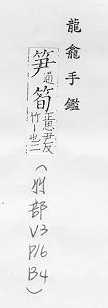 龍龕手鑑
笋通筍正思尹反竹丨也二
(竹部
V3
P16
B4)